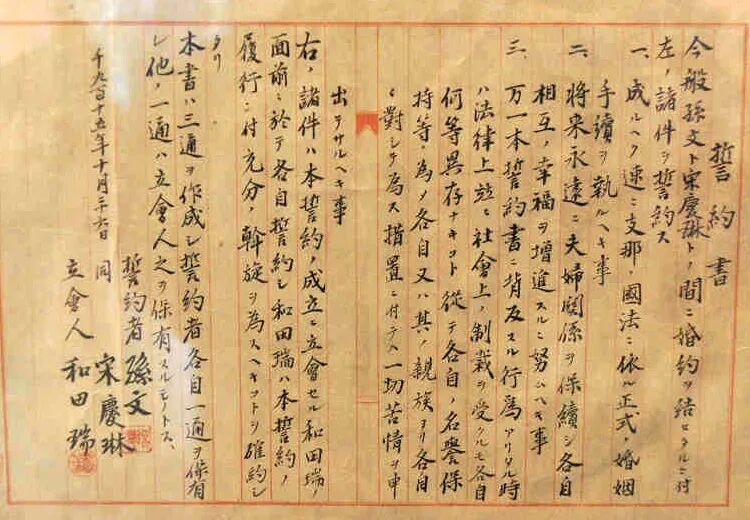 誓約書
今般孫文ト宋慶琳トノ間ニ婚約ヲ結ヒタルニ付
左ノ諸件ヲ誓約ス
一、成ルヘク速ニ支那ノ國法ニ依ル正式ノ婚姻
手續ヲ執ルヘキ事
二、將来永遠ニ夫婦関係ヲ保續シ各自
相互ノ幸福ヲ増進スルニ努ムヘキ事
三、万一本誓約書ニ背反スル行爲アリタル時
ハ法律上並ニ社會上ノ制裁ヲ受クルモ各自
何等異存ナキコト從テ各自ノ名譽保
持等ノ為メ各自又ハ其ノ親族ヨリ各自
ニ對シテ為ス措置ニ付テハ一切苦情ヲ申
出テサルヘキ事
右ノ諸件ハ本誓約ノ成立ニ立會セル和田瑞ノ
面前ニ於テ各自誓約シ和田瑞ハ本誓約ノ
履行ニ付充分ノ斡旋ヲ為スヘキコトヲ確約シ
タリ
本書ハ三通ヲ作成シ誓約者各自一通ヲ保有
シ他ノ一通ハ立會人之ヲ保有スルモノトス、
誓約者 孫文
千九百十五年十月二十六日 同 宋慶琳
立會人 和田瑞